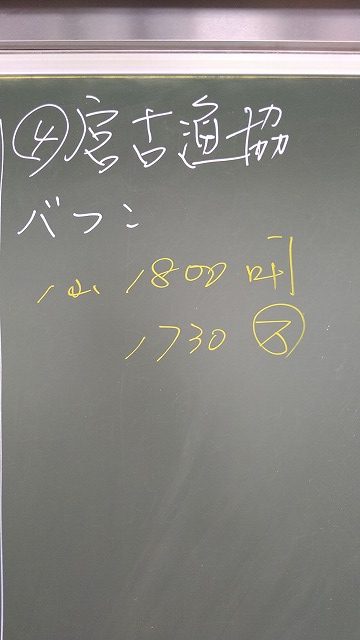 ④宮古漁協
バフン
1山 1800
1730